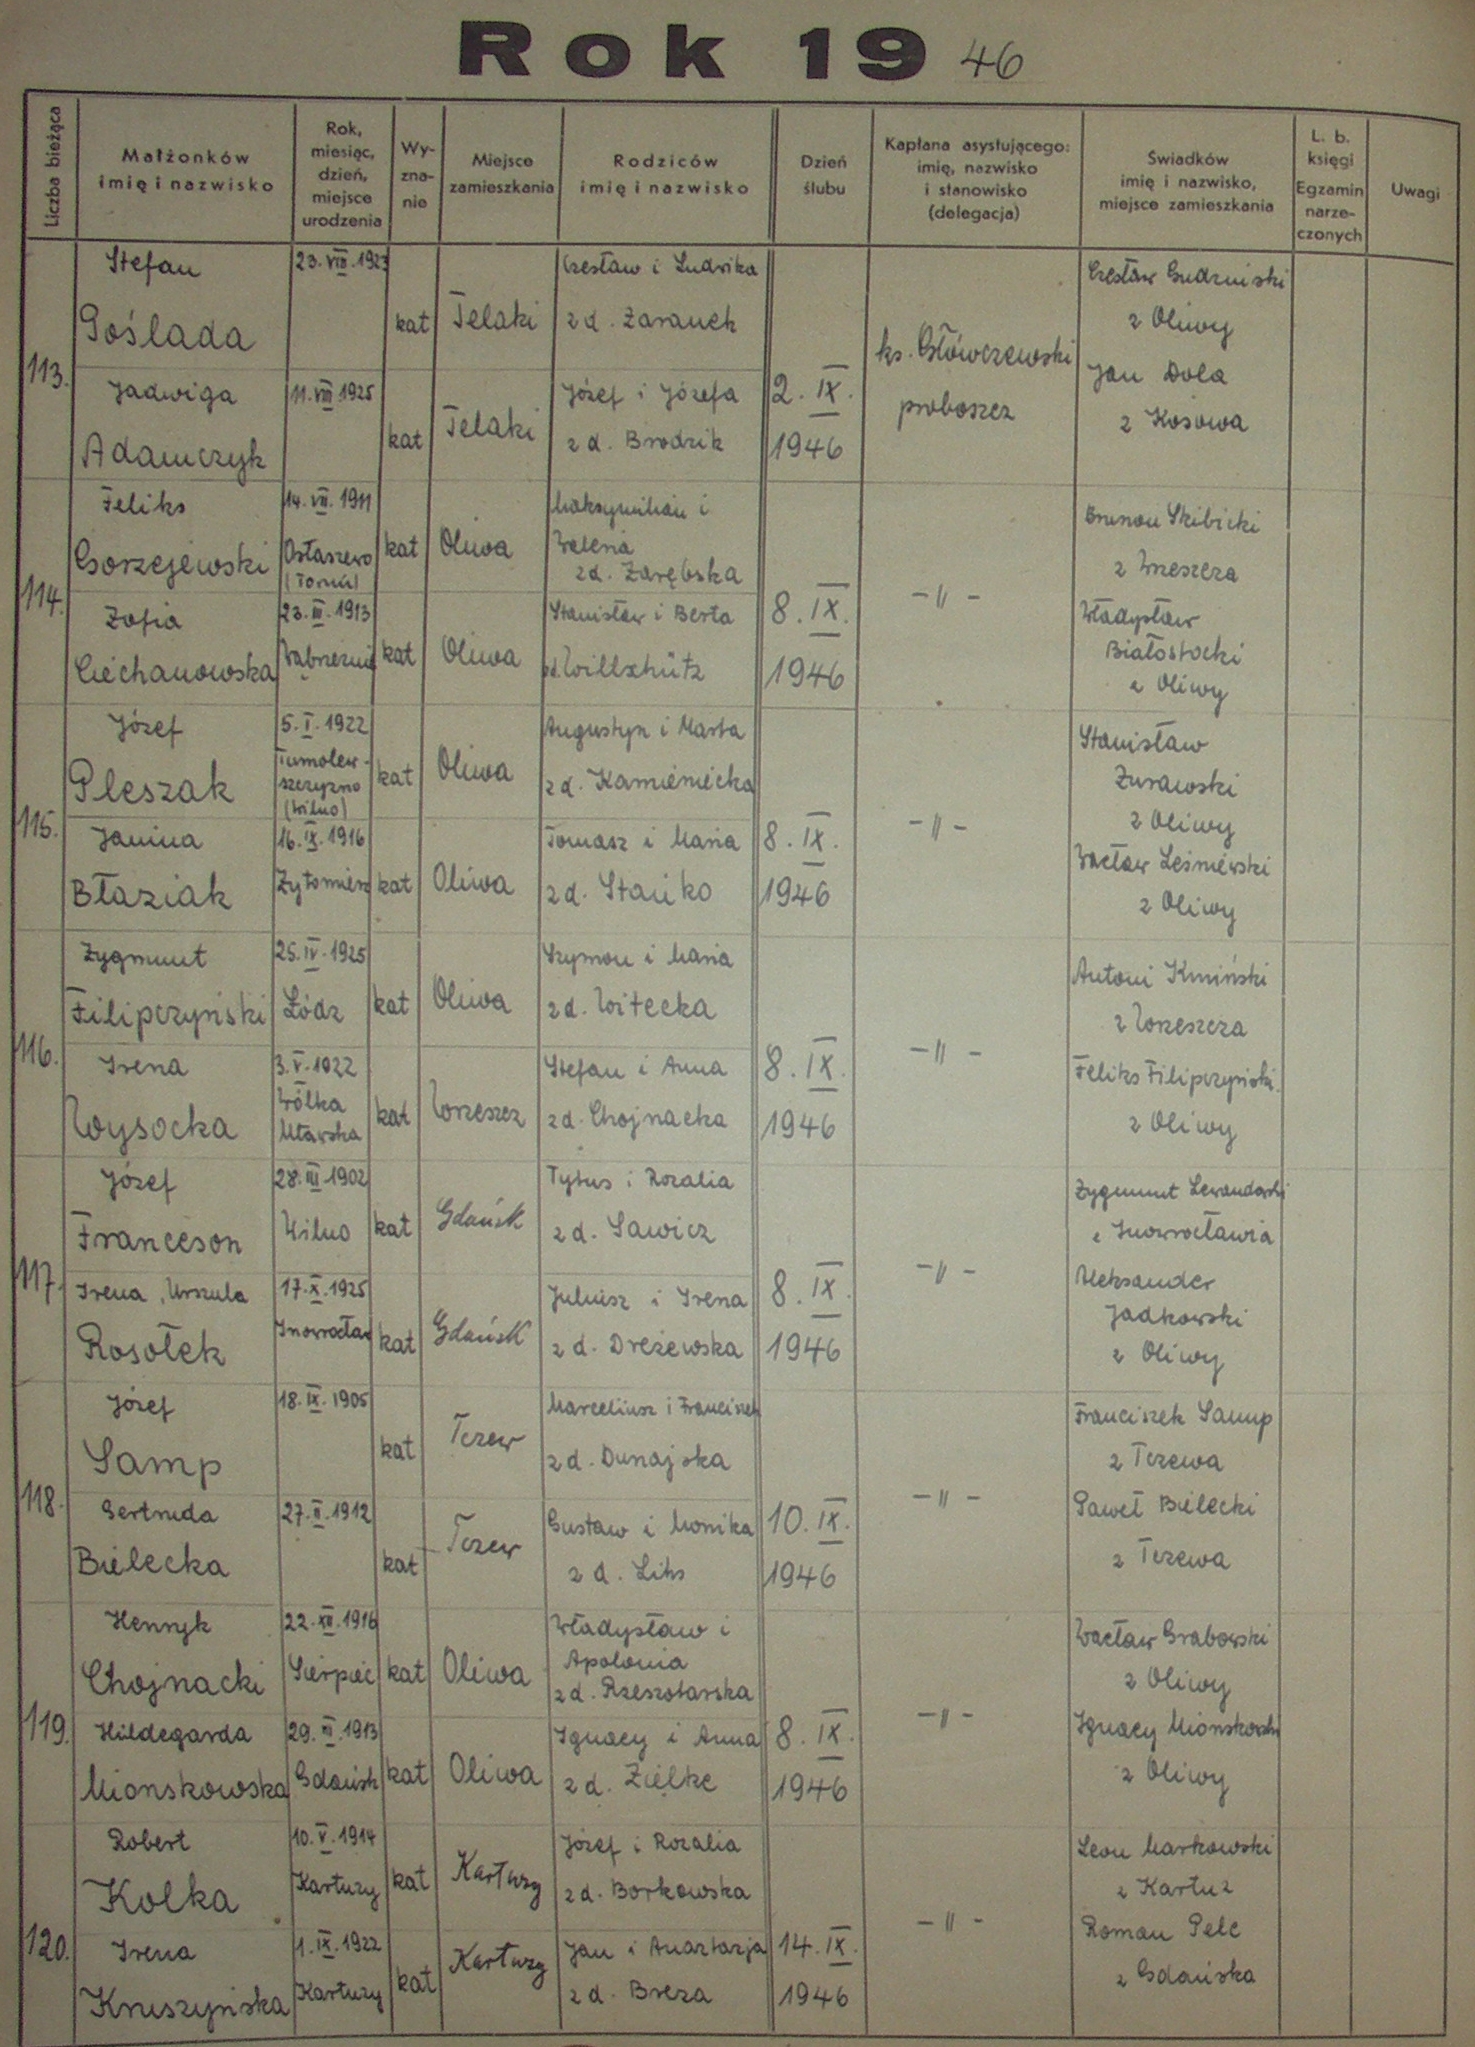 Rok 19 46
Liczba bieżąca
Małżonków
imię i nazwisko
Rok,
miesiąc,
dzień,
miejsce
urodzenia
Wy-
zna-
nie
Miejsce
zamieszkania
Rodziców
imię i nazwisko
Dzień
ślubu
Kapłana asystującego:
imię, nazwisko
i stanowisko
(delegacja)
Świadków
imię i nazwisko,
miejsce zamieszkania
L. b.
księgi
Egzamin
narze-
czonych
Uwagi
113.
Stefan
Goślada
23.VIII.1923
kat
Telaki
Czesław i Ludwika
z d. Zaranek
Jadwiga
Adamczyk
11.VIII.1925
kat
Telaki
Józef i Józefa
z d. Brodzik
2.IX.
1946
ks. Główczewski
proboszcz
Czesław Gudzinski
z Oliwy
Jan Dola
z Kosowa
114.
Feliks
Gorzejewski
14.VII.1911
Ostaszewo
(Toruń)
kat
Oliwa
Maksymilian i
Waleria
zd. Zarębska
Zofia
Ciechanowska
23.III.1913
kat
Oliwa
Stanisław i Berta
Willschütz
8.IX.
1946
-〃-
Brunon Skibicki
z Wrzeszcza
Władysław
Białostocki
z Oliwy
115.
Józef
Pleszak
5.I.1922
Tumolew-
szczyzno
(Wilno)
kat
Oliwa
Augustyn i Marta
zd. Kamieniecka
Janina
Błaziak
16.IX.1916
Żytomierz
kat
Oliwa
Tomasz i Maria
zd. Stańko
8.IX.
1946
-〃-
Stanisław
Żurawski
z Oliwy
Wacław Leśniewski
z Oliwy
116.
Zygmunt
Filipczyński
25.IV.1925
Łódz
kat
Oliwa
Szymon i Maria
zd. Witecka
Irena
Wysocka
3.V.1922
Wólka
Mławska
kat
Wrzeszcz
Stefan i Anna
zd. Chojnacka
8.IX.
1946
-〃-
Antoni Kmiński
z Wrzeszcza
Feliks Filipczyński
z Oliwy
117.
Józef
Franceson
28.III.1902
Wilno
kat
Gdańsk
Tytus i Rozalia
zd. Sawicz
Irena, Urszula
Rosołek
17.X.1925
Inowrocław
kat
Gdańsk
Juliusz i Irena
z d. Dreżewska
8.IX.
1946
-〃-
Zygmunt Lewandowski
z Inowrocławia
Aleksander
Jadkowski
z Oliwy
118.
Józef
Samp
18.IX.1905
kat
Tczew
Marceliusz i Franciszek
zd. Dunajska
Gertruda
Bielecka
27.II.1912
kat
Tczew
Gustaw i Monika
z d. Liks
10.IX.
1946
-〃-
Franciszek Samp
z Tczewa
Paweł Bielecki
z Tczewa
119.
Henryk
Chojnacki
22.XII.1916
Sierpiec
kat
Oliwa
Władysław i
Apolonia
zd. Rzeszotarska
Hildegarda
Mionskowska
29.III.1913
Gdańsk
kat
Oliwa
Ignacy i Anna
z d. Zielke
8.IX.
1946
-〃-
Wacław Grabowski
z Oliwy
Ignacy Mionskowski
z Oliwy
120.
Robert
Kolka
10.V.1914
Kartuzy
kat
Kartuzy
Józef i Rozalia
zd. Borkowska
Irena
Kruszyńska
1.IX.1922
Kartuzy
kat
Kartuzy
Jan i Anastazja
z d. Breza
14.IX.
1946
-〃-
Leon Markowski
z Kartuz
Roman Pelc
z Gdańska